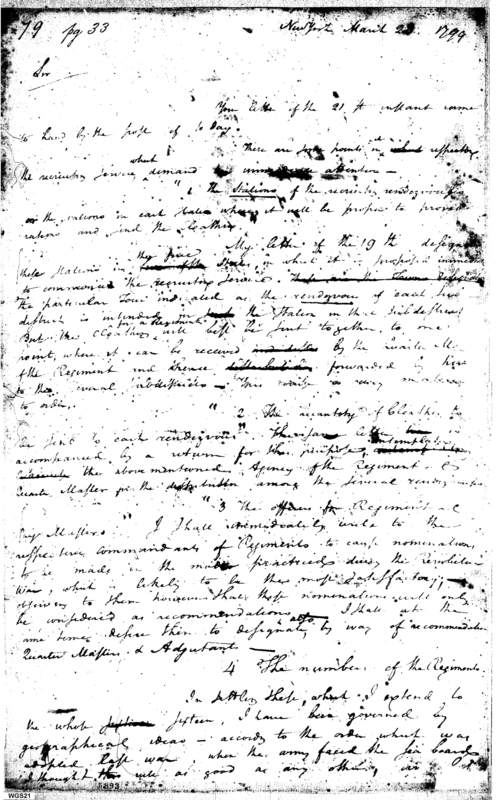 79 pg 33
New York March 23 1799
Sir
Your letter of the 21st instant came
to hand by the post of to day.
There are four points respecting
the recruiting service, which demand attention —
"1 the Stations of the recruiting rendezvous
or the stations in each State where it will be proper to provide
rations and send the Cloathing"
My letter of the 19th designates
these stations in the five States, in which it is proposed
to commence the recruiting service
the particular Town indicated as the rendezvous of each
district is intended the Station in these Subdistricts
But the Cloathing for a Regiment will best be sent together to one
point, where it can be received by the Quarter Mr
of the Regiment and thence forwarded by him
to the several subdistricts
to order.
"2 The quantity of Cloathing to
be sent to each rendezvous"
accompanied by a return for this purpose contemplates
the above mentioned Agency of the Regimental
Quarter Master for the distribution among the several rendezvous
"3 The Regimental
Pay Masters" I shall immediately write to the
respective commandants of Regiments to cause nominations
to be made in the mode practiced during the Revolution
War, which is likely to be the most satisfactory,
observing to them however that these nominations will only
be considered as recommendations. I shall at the
same time desire them to designate also by way of recommendation
Quarter Masters & Adjutants —
4 The numbers of the Regiments
In settling these, which I extend to
the whole sixteen, I have been governed by
geographical ideas — according to the order which was
adopted last war when the army faced the sea board
I thought rule as good as any other,
1893
WGS21